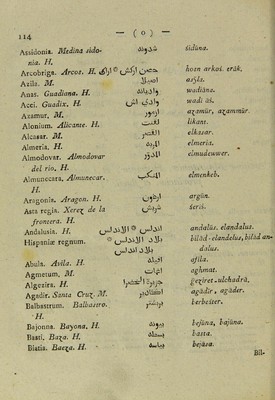 114 — ( 0 ) —
Assidonia. Medina sido- شدونه sidúna.
nia. H.
Arcobriga. Arcos. H. حصن اركش * اراك hosn arkoi. erák.
Azila. M. اصيلا asyla.
Anas. Guadiana. H. واديانه wadiâna.
Acci. Guadix. H. وادي اش wadi âs.
Azamur. M. ازمور azamúr, azammúr.
Alonium. Alicante. H. لقنت likant.
Alcasar. M. القصر elkasar.
Almeria. H. المريه elmeria.
Almodovar. Almodovar المدور elmudeuwer.
del rio. H.
Almunecara. Almunecar. المنكب elmenkeb.
H.
Aragonia. Aragon. H. ارغون argún.
Asta regia. Xerez de la شريش seris.
frontera. H.
Andalusia. H. اندلس * الاندلس andalús. elandalus.
Hispaniæ regnum. بلاد الاندلس * bilâd-elandelus, bilâd an-
بلاد اندلس dalus.
Abula. Avila. H. افيله afila.
Agmetum. M. اغمات aghmat.
Algezira. H. جزيرة الخضرا geziret-ulchadrâ.
Agadir. Santa Cruz. M. agâdir, agâder.
Balbastrum. Balbastro. بربشتر berbester.
H.
Bajonna. Bayona. H. بيونه bejúna, bajúna.
Basti. Baza. H. بسطه basta.
Biatia. Baeza. H. بياسه bejâsa.
Bil-